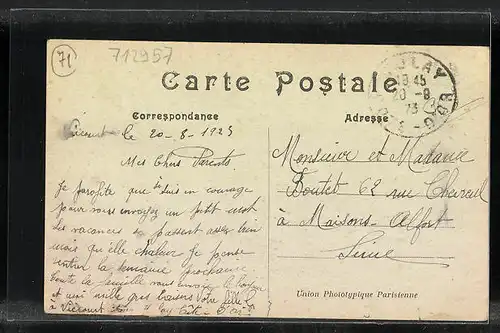 71
712957
Carte Postale
Correspondance
Adresse
le 20-8-1923
Mes Chers Parents
Je profite que je suis en courage
pour vous envoyez un petit mot
les vacances se passent assez bien
mais qu'elle chaleur je pense
rentrer la semaine prochaine
toute la famille vous envoy le bonjour
et moi mille gros baisers Votre fille
Monsieur et Madame
Boutet 62 rue Chevreul
à Maisons-Alfort
Seine
Union Phototypique Parisienne